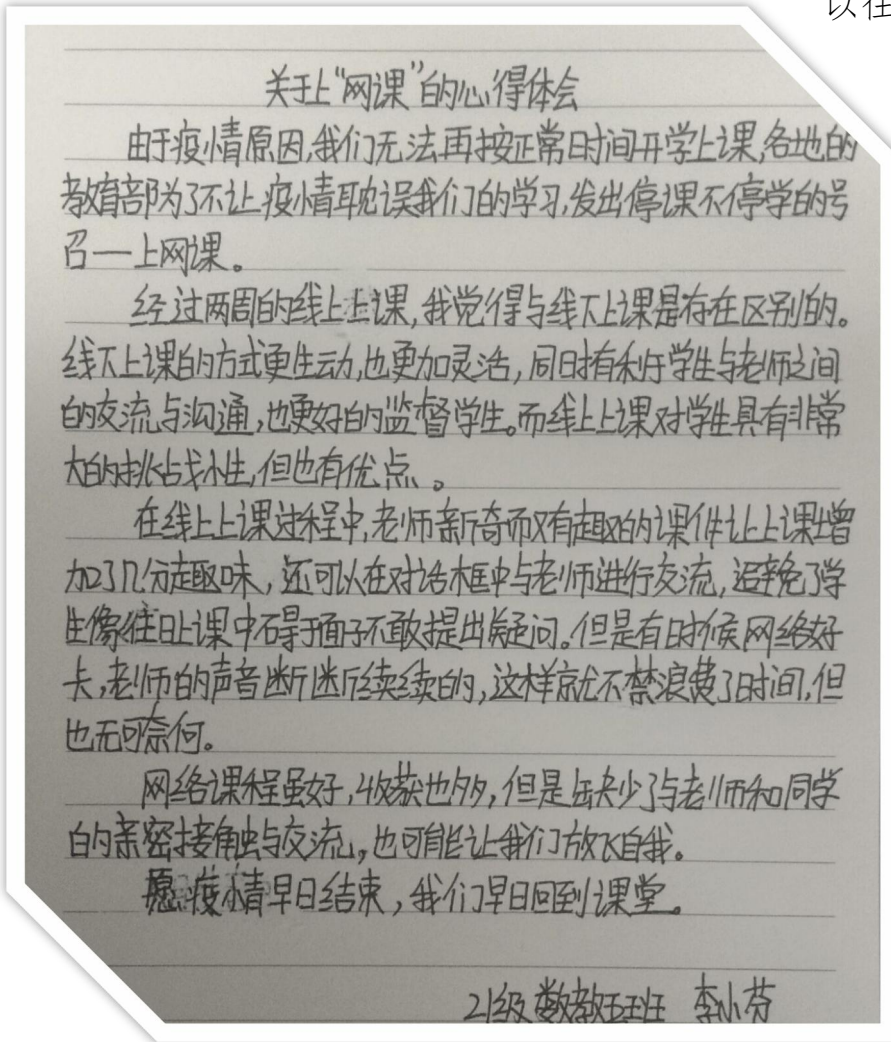 以往
关于上“网课”的心得体会
由于疫情原因,我们无法再按正常日时间开学上课,各地的
教育部为了不让疫情耽误我们的学习,发出停课不停学的号
召——上网课。
经过两周的线上上课,我觉得与线下上课是存在区别的。
线下上课的方式更生动,也更加灵活,同时有利于学生与老师之间
的交流与沟通,也更好的监督学生。而线上上课对学生具有非常
大的挑战性,但也有优点。
在线上上课过程中,老师新奇而又有趣的课件让上课增
加了几分趣味,还可以在对话框中与老师进行交流,避免了学
生像往日上课中碍于面子不敢提出疑问。但是有时候网络好
卡,老师的声音断断续续的,这样就不禁浪费了时间,但
也无可奈何。
网络课程虽好,收获也多,但是缺少了与老师和同学
的亲密接触与交流,也可能让我们放飞自我。
愿疫情早日结束,我们早日回到课堂。
21级数教五班 李小芬